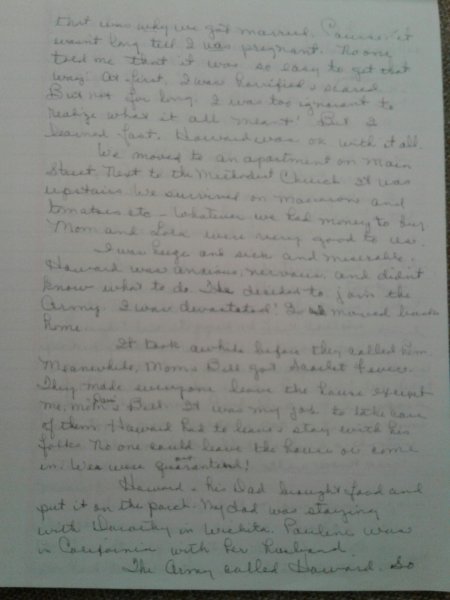 that was why we got married. Course it
wasn't long till I was pregnant. No one
told me that it was so easy to get that
way. At first, I was horrified & scared.
But not for long. I was too ignorant to
realize what it all meant! But I
learned fast. Howard was ok with it all.
We moved to an apartment on Main
Street, Next to the Methodist Church. It was
upstairs. We survived on macaroni and
tomatoes etc - Whatever we had money to buy
Mom and Lora were very good to us.
I was huge and sick and miserable.
Howard was anxious, nervous, and didn't
know what to do. He decided to join the
Army. I was devastated! So moved back
home.
It took awhile before they called him.
Meanwhile, Mom & Bill got Scarlet fever.
They made everyone leave the house except
me, Mom & Bill. It was my job to take care
of them. Howard had to leave & stay with his
folks. No one could leave the house or come
in. We were quarantined!
Howard & his Dad brought food and
put it on the porch. My dad was staying
with Dorothy in Wichita. Pauline was
in California with her husband.
The Army called Howard. So